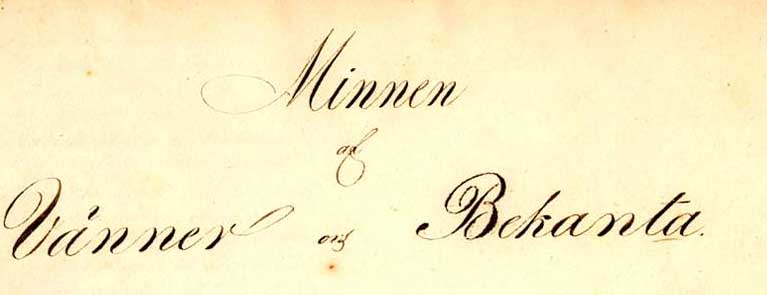 Minnen
af
Vänner och Bekanta.